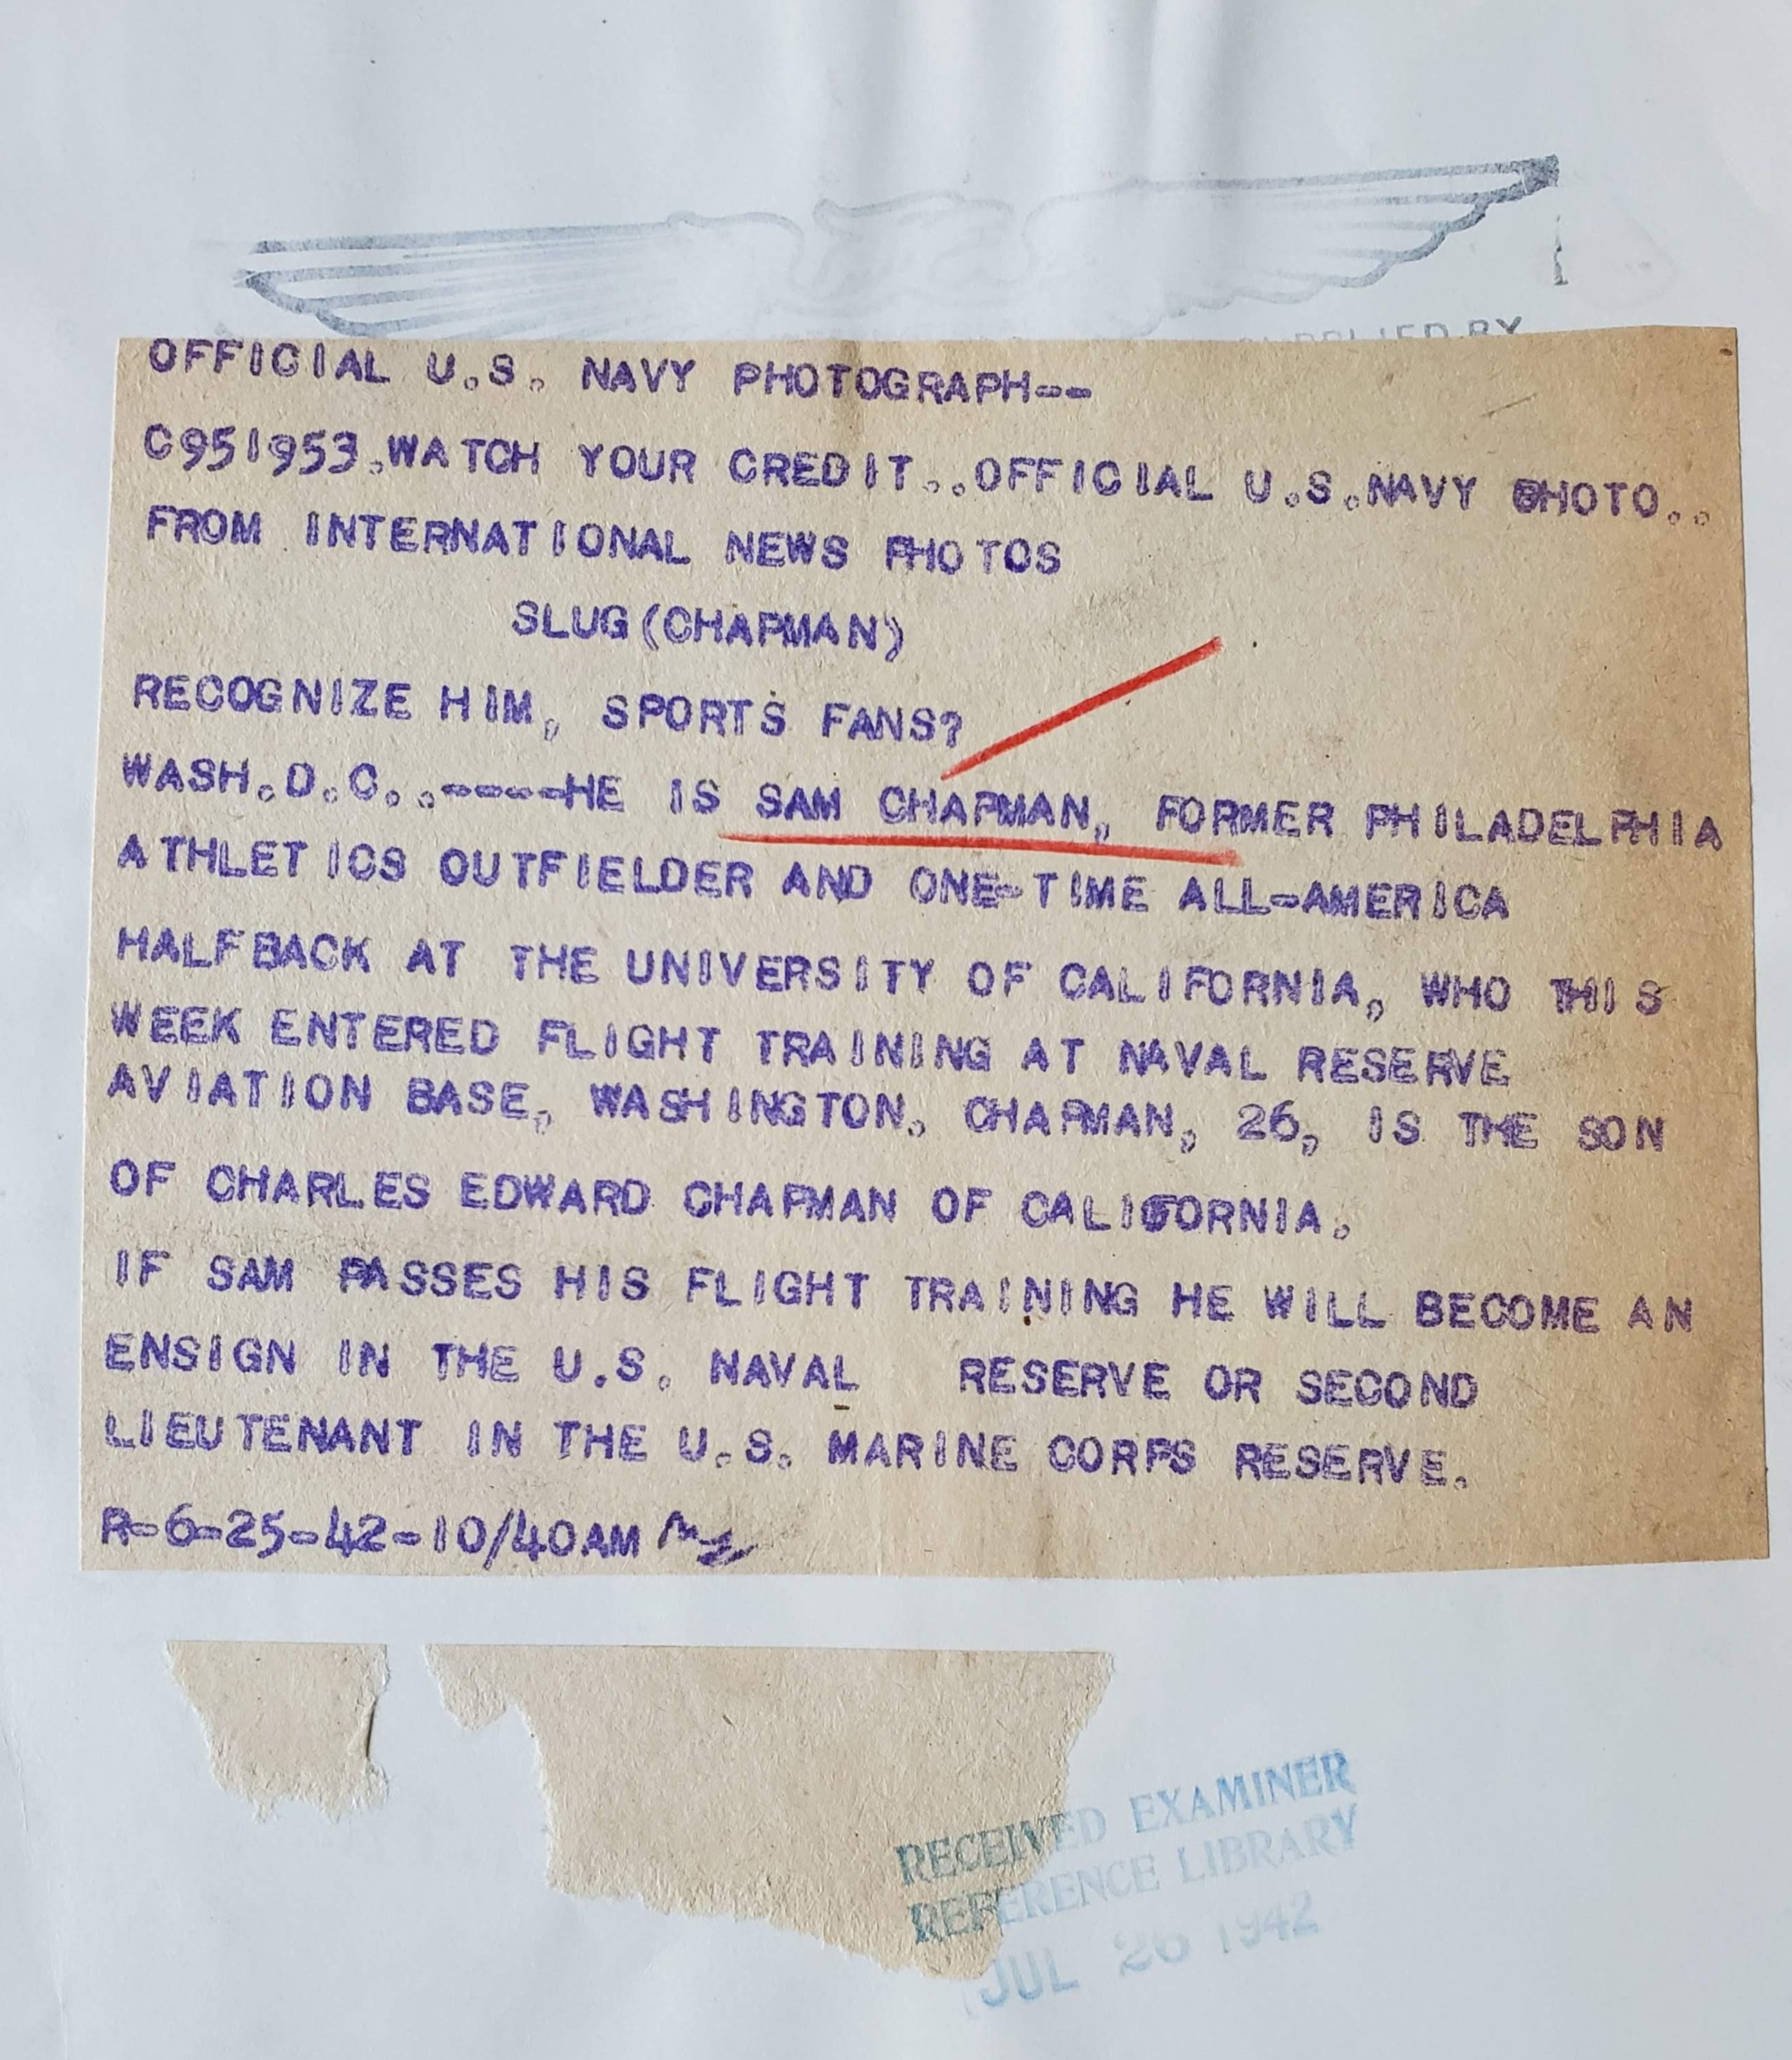 SUPPLIED BY
OFFICIAL U.S. NAVY PHOTOGRAPH--
C951953.WATCH YOUR CREDIT..OFFICIAL U.S.NAVY PHOTO..
FROM INTERNATIONAL NEWS PHOTOS
SLUG(CHAPMAN)
RECOGNIZE HIM, SPORTS FANS?
WASH.D.C..----HE IS SAM CHAPMAN, FORMER PHILADELPHIA
ATHLETICS OUTFIELDER AND ONE-TIME ALL-AMERICA
HALFBACK AT THE UNIVERSITY OF CALIFORNIA, WHO THIS
WEEK ENTERED FLIGHT TRAINING AT NAVAL RESERVE
AVIATION BASE, WASHINGTON. CHAPMAN, 26, IS THE SON
OF CHARLES EDWARD CHAPMAN OF CALIFORNIA.
IF SAM PASSES HIS FLIGHT TRAINING HE WILL BECOME AN
ENSIGN IN THE U.S. NAVAL RESERVE OR SECOND
LIEUTENANT IN THE U.S. MARINE CORPS RESERVE.
R-6-25-42-10/40AM
RECEIVED EXAMINER
REFERENCE LIBRARY
JUL 26 1942